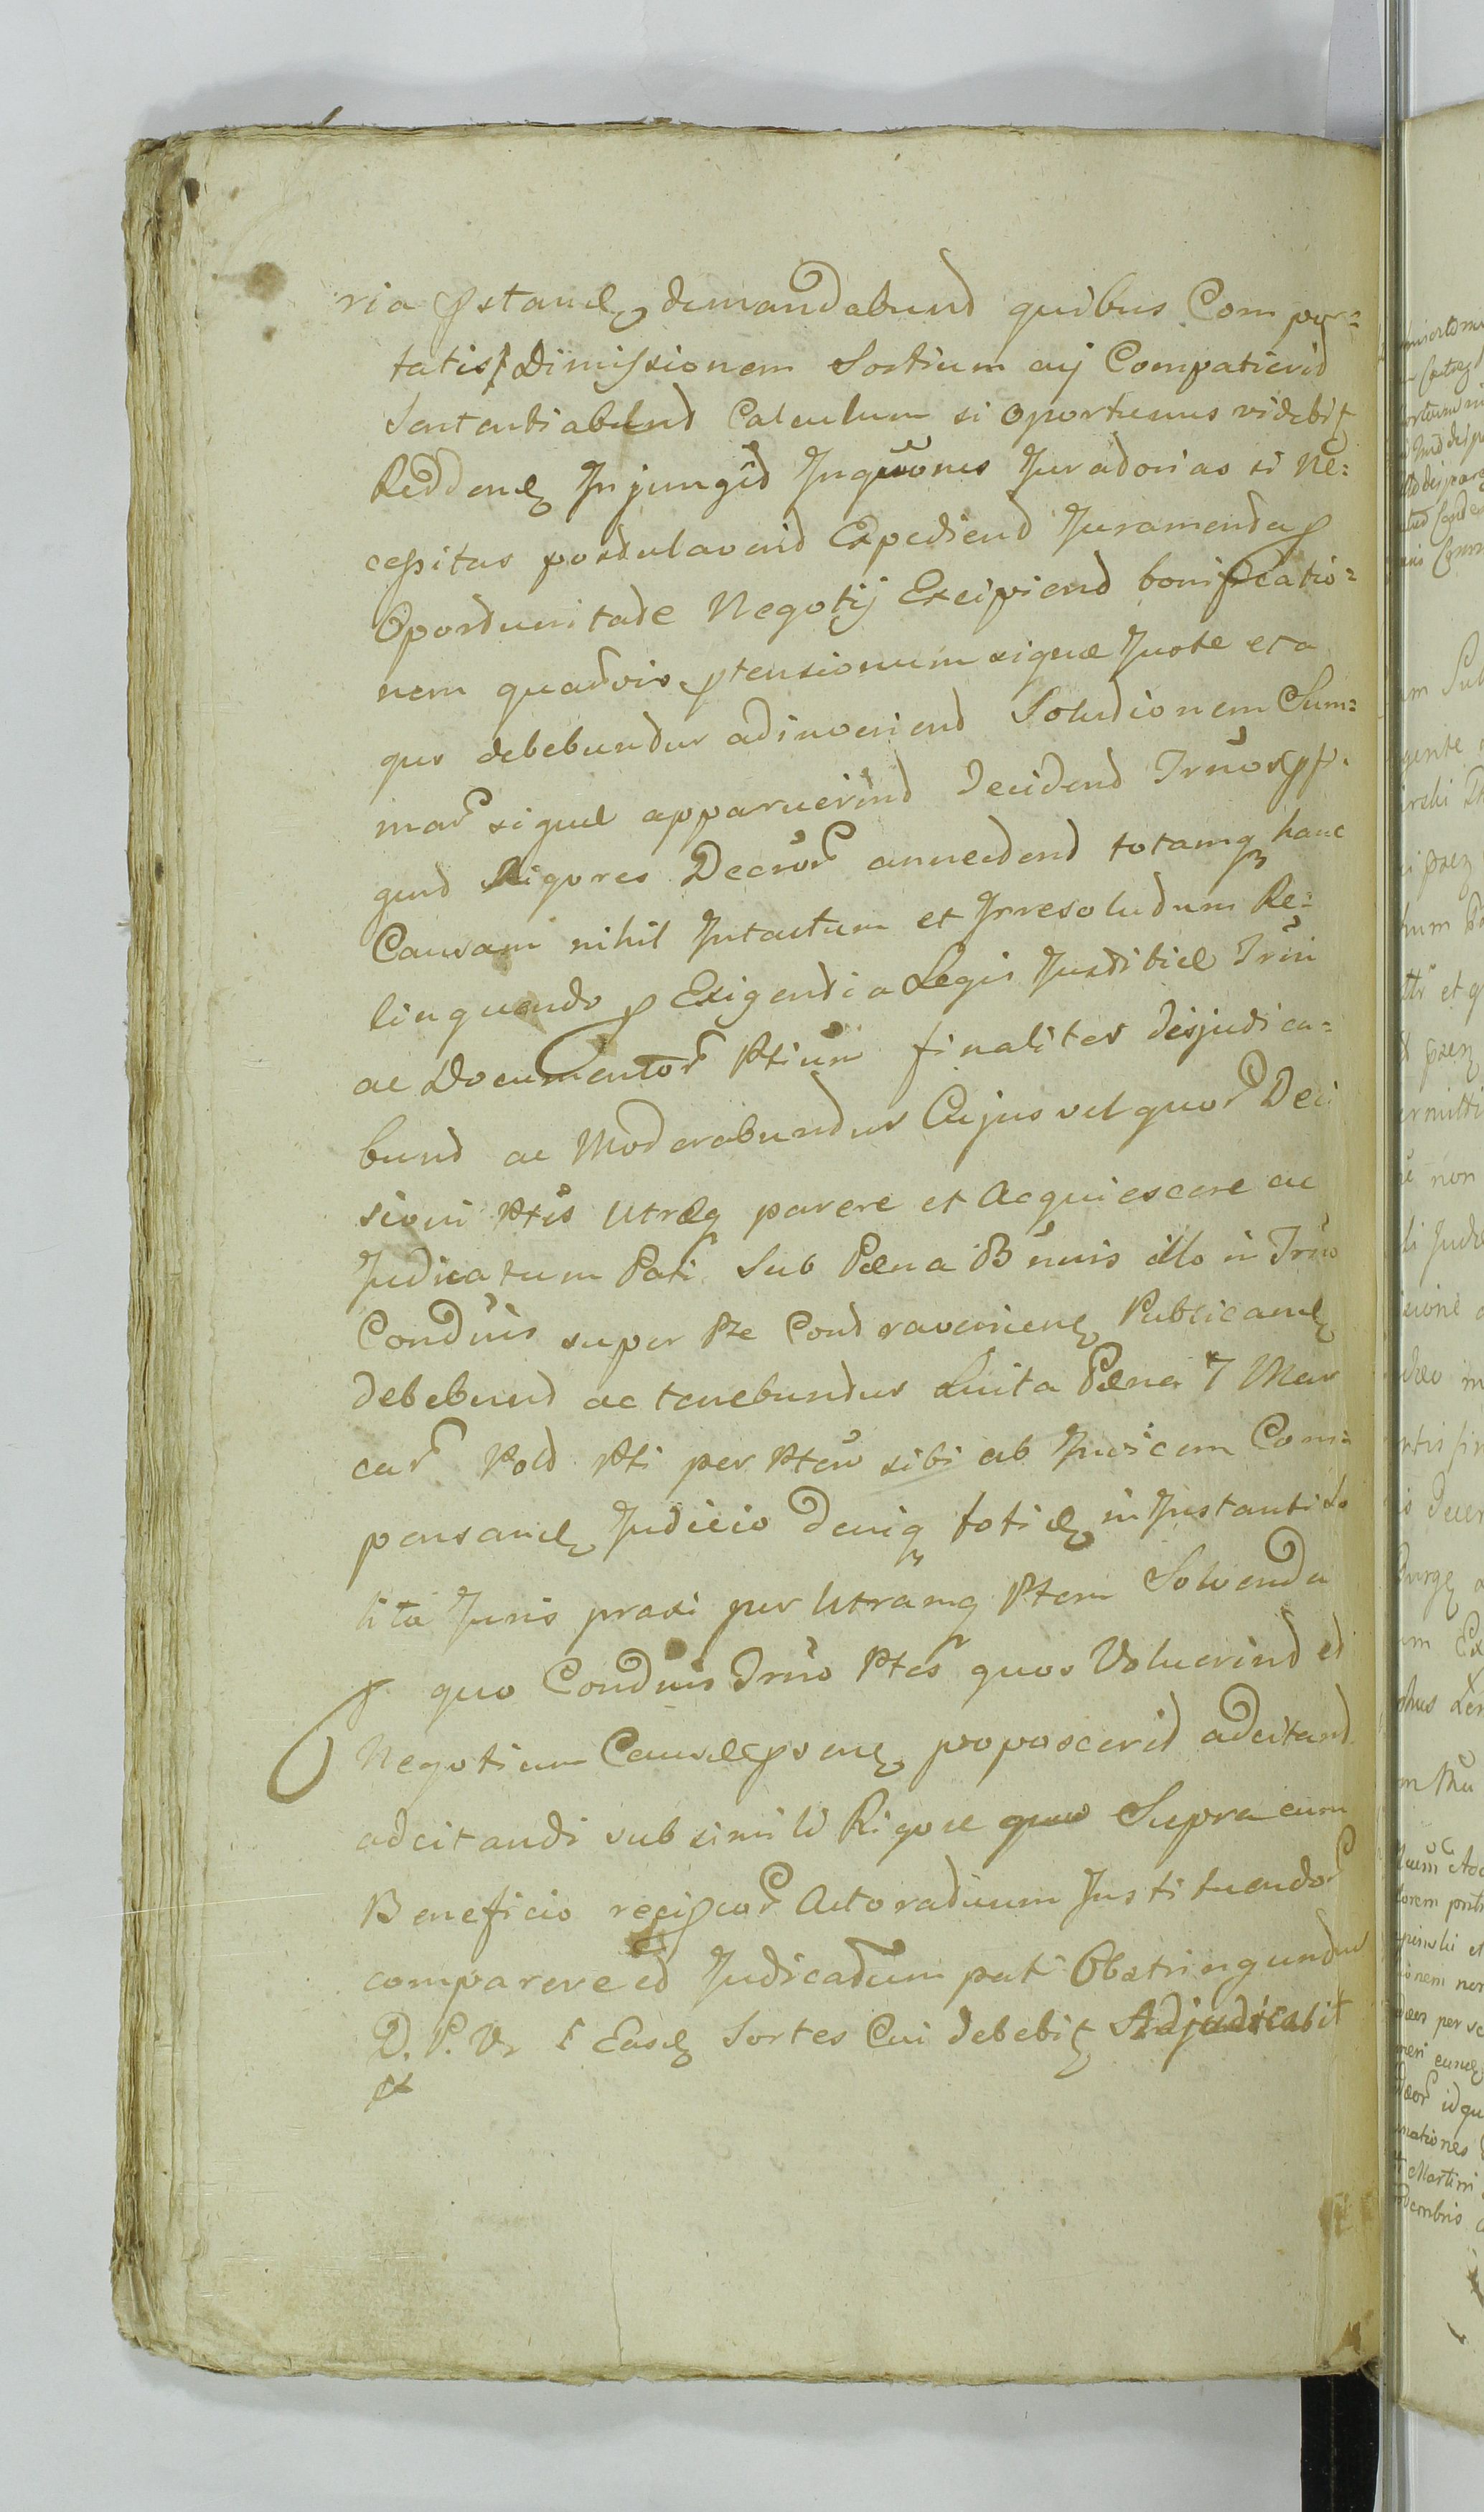 ria pstand demandabund quibus Compor=
tatis Dimissionem Sortium aij Compatierid
Sententiabund Calculum si oportunus videbit
Reddend Injungid Inquones Juradorias si Ne=
cessitas posdulaverid Expediend Juramenda p
Opordunitade Negotij Excipiend bonificatio=
nem quadvis ptensionum siquæ Juste et a
qus debebundur adinveniend Soludionem Sum=
mar siquæ apparuerind Decidend Trnos pf
gend Rigores Decror annectend totamq hanc
Causam nihil Intactum et Irresoludum Re=
linquendo p Exigendia Legis Justitiæ Trni
ac Documentor Ptium finaliter disjudica=
bund ac Moderabundur Cujus vel quor Deci
sioni Ptes Utræq parere et Acquiescere ac
Judicatum Pati Sub Pæna Bnnis illo in Trno
Condnis super Pte Condraveniend Publicand
debebund ac tenebundur Luita Pæna 7 Mar
car Pold Pti per Ptem sibi ab Invicem Com=
pensand Judicio deniq totid in Instanti So
lita Juris praxi per Utramq Ptem Solvenda
p quo Condnis Trno Ptes quos Voluerind ed
Negotium Causæ psend poposcerid adcitand
adcitandi sub simili Rigore quo Supra cum
Beneficio recipcor Actoraduum Instituendor
comparere ed Judicadum pati Obstringundur
D. P. Vr Easd Sortes Cui debebit Adjudicabit